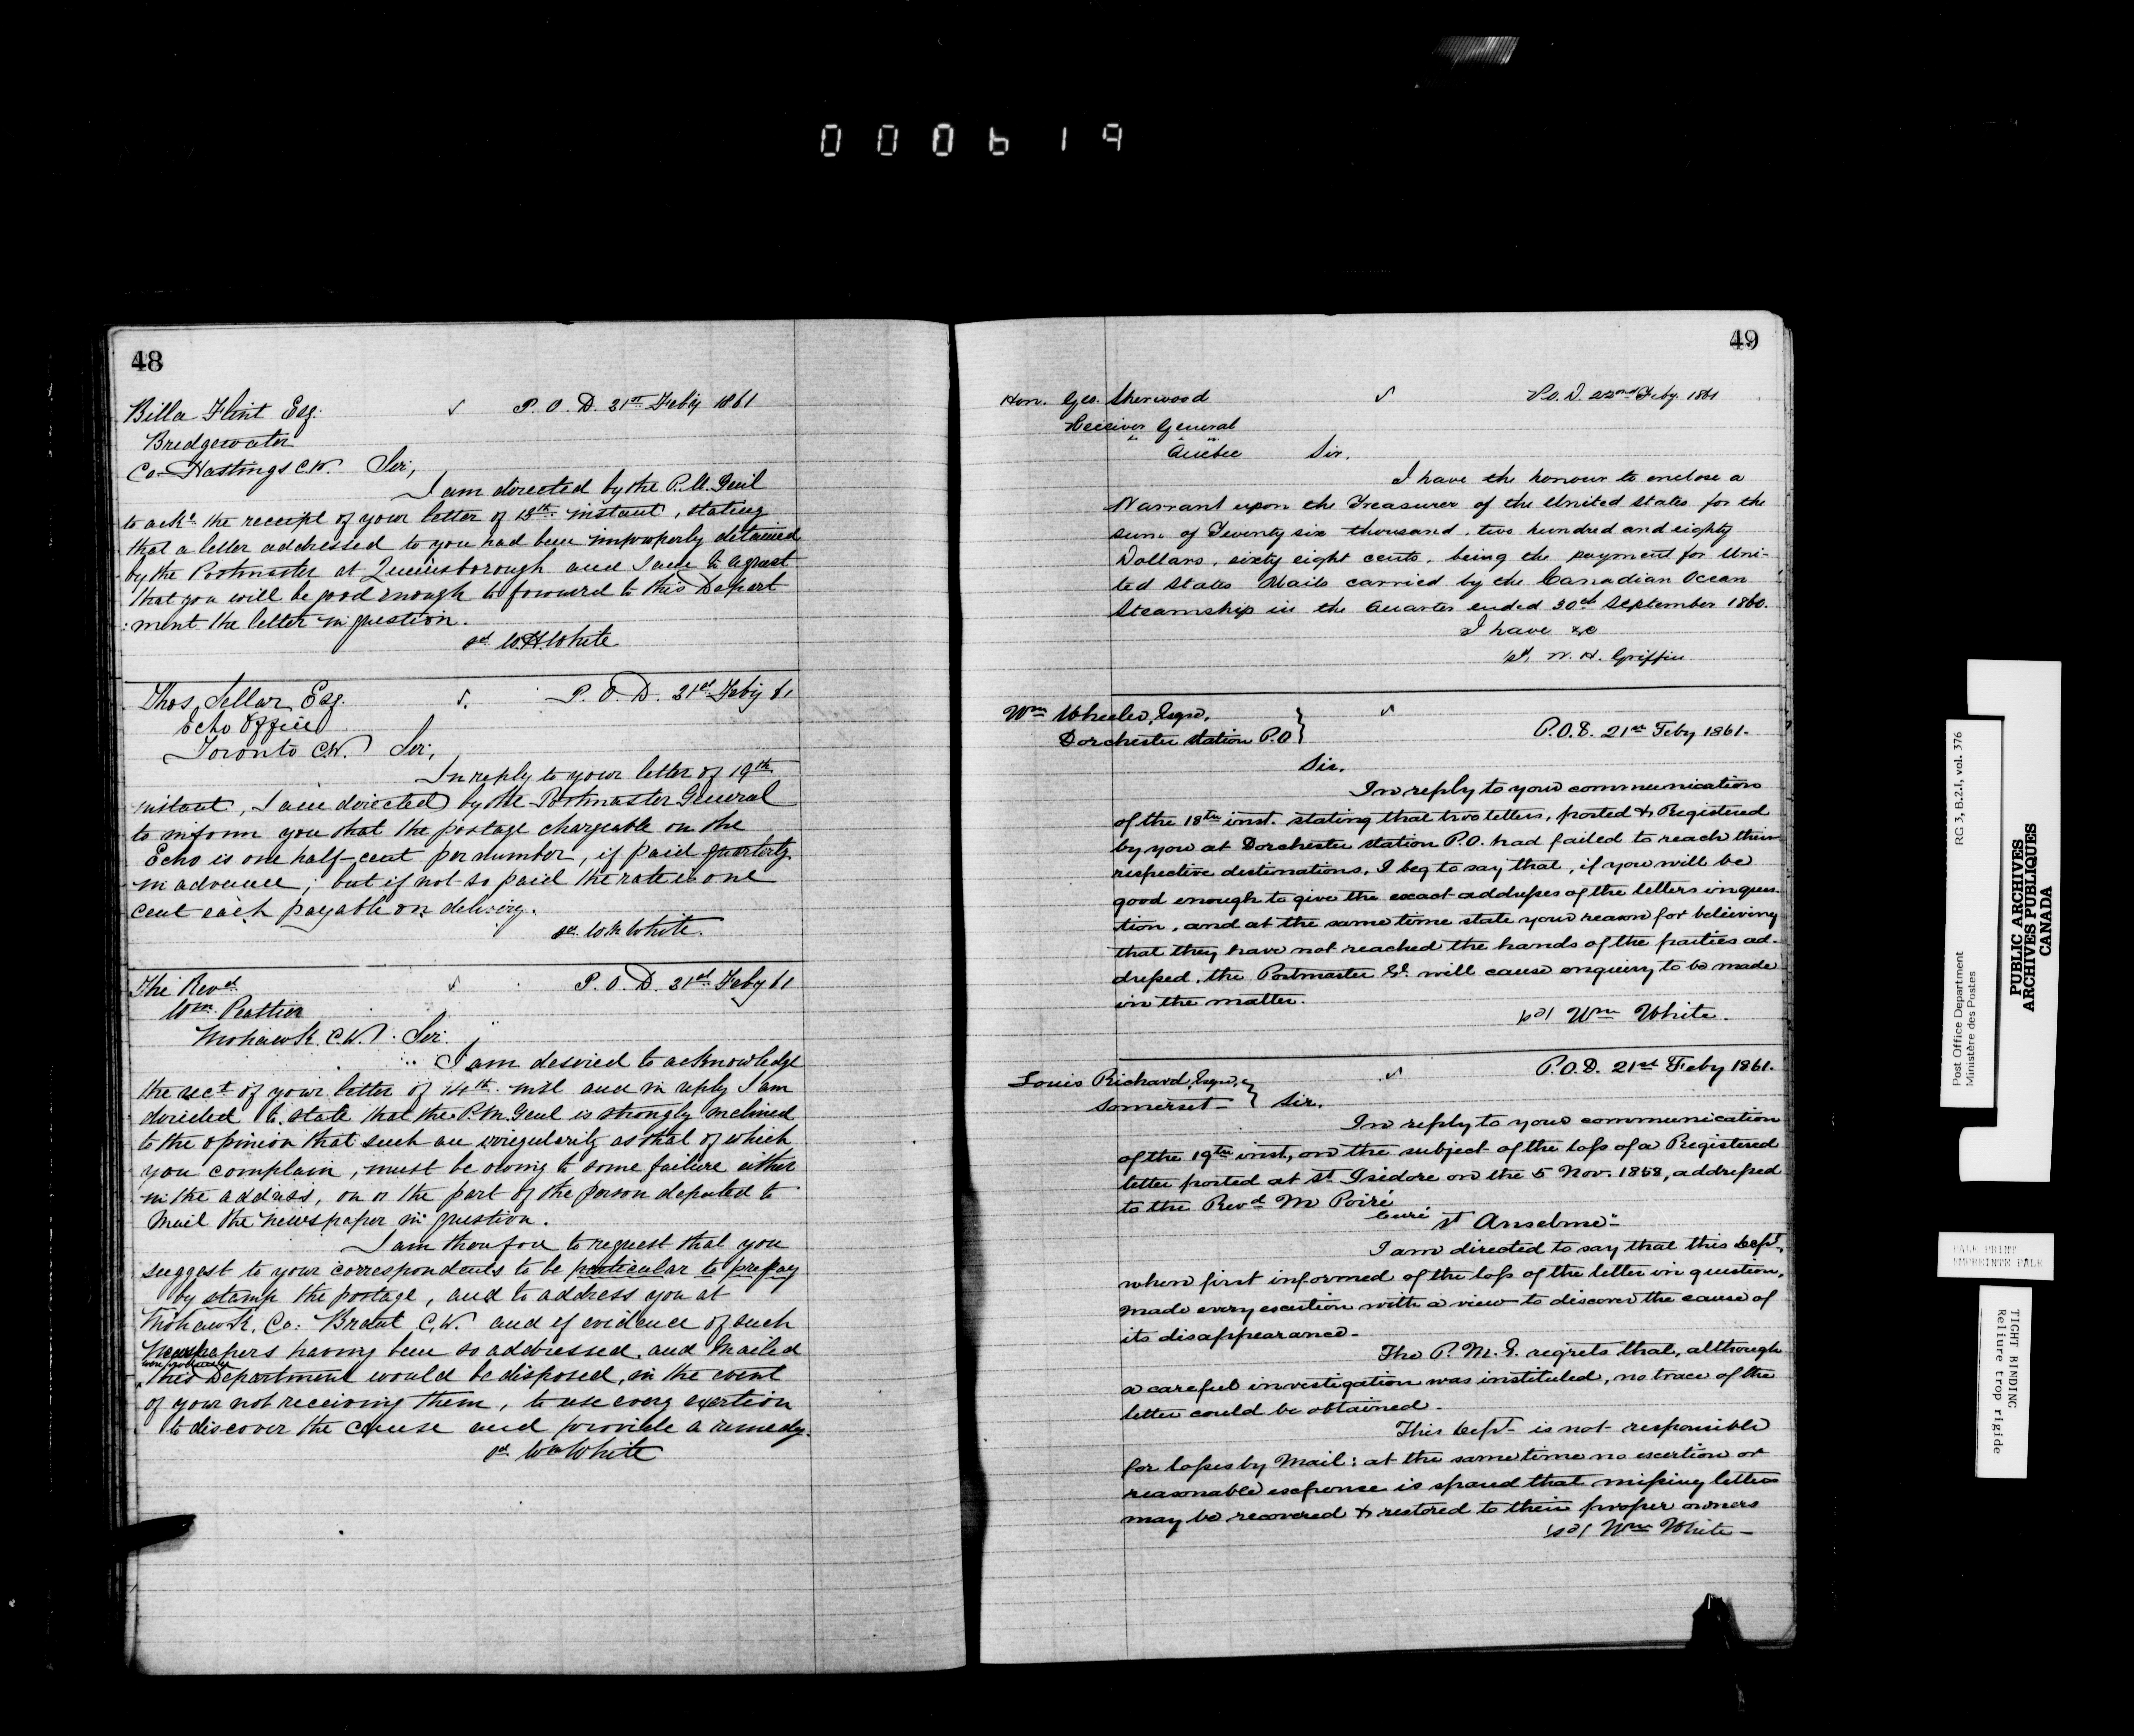 000619
48
Billa Flint Esq. ✓ P. O. D. 21st Feby 1861
Bridgewater
Co. Hastings C.W. Sir,
I am directed by the P. M. Genl
to ackn the receipt of your letter of 13th instant, stating
that a letter addressed to you had been improperly detained
by the Postmaster at Queensborough and I am to request
that you will be good enough to forward to this Depart
:ment the letter in question.
sd W.H. White
Thos. Sellar, Esq. ✓. P. O. D. 21st Feby 61
Echo Office
Toronto C.W. Sir,
In reply to your letter of 19th
instant, I am directed by the Postmaster General
to inform you that the postage chargeable on the
Echo is one half-cent per number, if paid quarterly
in advance; but if not so paid the rate is one
cent each payable on delivery.
sd. W H White.
The Revd ✓ P. O. D. 21st Feby 61
Wm.
Mohawk C.W. Sir.
I am desired to acknowledge
the rect of your letter of 14th inst and in reply I am
directed to state that the P.M. Genl is strongly inclined
to the opinion that such an irregularity as that of which
you complain, must be owing to some failure either
in the address, on or the part of the person deputed to
Mail the Newspaper in question.
I am therefore to request that you
suggest to your correspondents to be particular to prepay
by stamp the postage, and to address you at
Mohawk, Co: Brant C.W. and if evidence of such
Newspapers having been so addressed, and Mailed
this Department would be disposed, in the event
of your not receiving them, to use every exertion
to discover the cause and provide a remedy.
sd Wm White
49
Hon. Geo. Sherwood ✓ P.O.D. 22nd Feby. 1861
Receiver General
Quebec Sir.
I have the honour to enclose a
Warrant upon the Treasurer of the United States for the
sum of Twenty six thousand, two hundred and eighty
Dollars, sixty eight cents, being the payment for Uni-
ted States Mails carried by the Canadian Ocean
Steamship in the Quarter ended 30th September 1860.
I have &c
sd. W. H. Griffin
Wm Wheeler, Esqre, ✓
Dorchester Station P.O } P.O.D. 21st Feby 1861.
Sir,
In reply to your communication
of the 18th inst. stating that two letters, posted & Registered
by you at Dorchester Station P.O. had failed to reach their
respective destinations, I beg to say that, if you will be
good enough to give the exact addresses of the letters in ques-
tion, and at the same time state your reason for believing
that they have not reached the hands of the parties ad-
dressed, the Postmaster Gl. will cause enquiry to be made
in the matter.
sd Wm White.
✓ P.O.D. 21st Feby 1861.
Louis Richard, Esqre, }
Somerset- } Sir.
In reply to your communication
of the 19th inst, on the subject of the loss of a Registered
letter posted at St. Isidore on the 5 Nov. 1858, addressed
to the Revd M Poiré
Curé St Anselme"
I am directed to say that this Dept,
when first informed of the loss of the letter in question,
made every exertion with a view to discover the cause of
its disappearance-
The P. M. G. regrets that, although
a careful investigation was instituted, no trace of the
letter could be obtained.
This Dept- is not responsible
for losses by Mail: at the same time no exertion or
reasonable expense is spared that missing letters
may be recovered & restored to their proper owners
sd Wm White-
Post Office Department
Ministère des Postes
RG 3, B.2.I, vol. 376
PUBLIC ARCHIVES
ARCHIVES PUBLIQUES
CANADA
PALE PRINT
EMPREINTE PALE
TIGHT BINDING
Reliure trop rigide